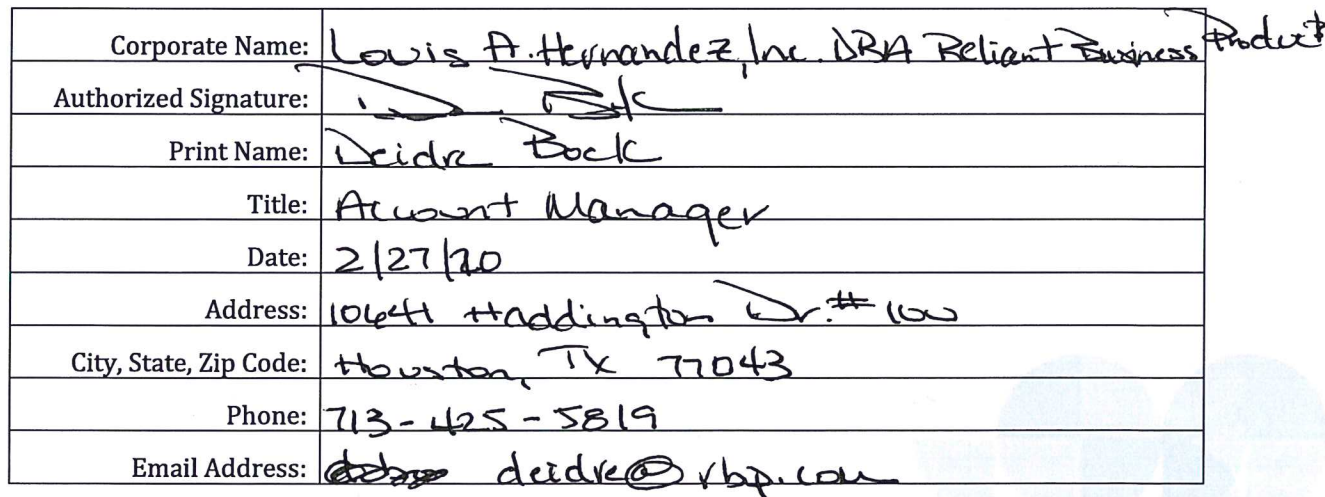 Corporate Name: Louis A. Hernandez, Inc. DBA Reliant Business Products
Authorized Signature:
Print Name: Deidre Bock
Title: Account Manager
Date: 2/27/20
Address: 10641 Haddington Dr. #100
City, State, Zip Code: Houston, TX 77043
Phone: 713-425-5819
Email Address: deidre@rbp.com